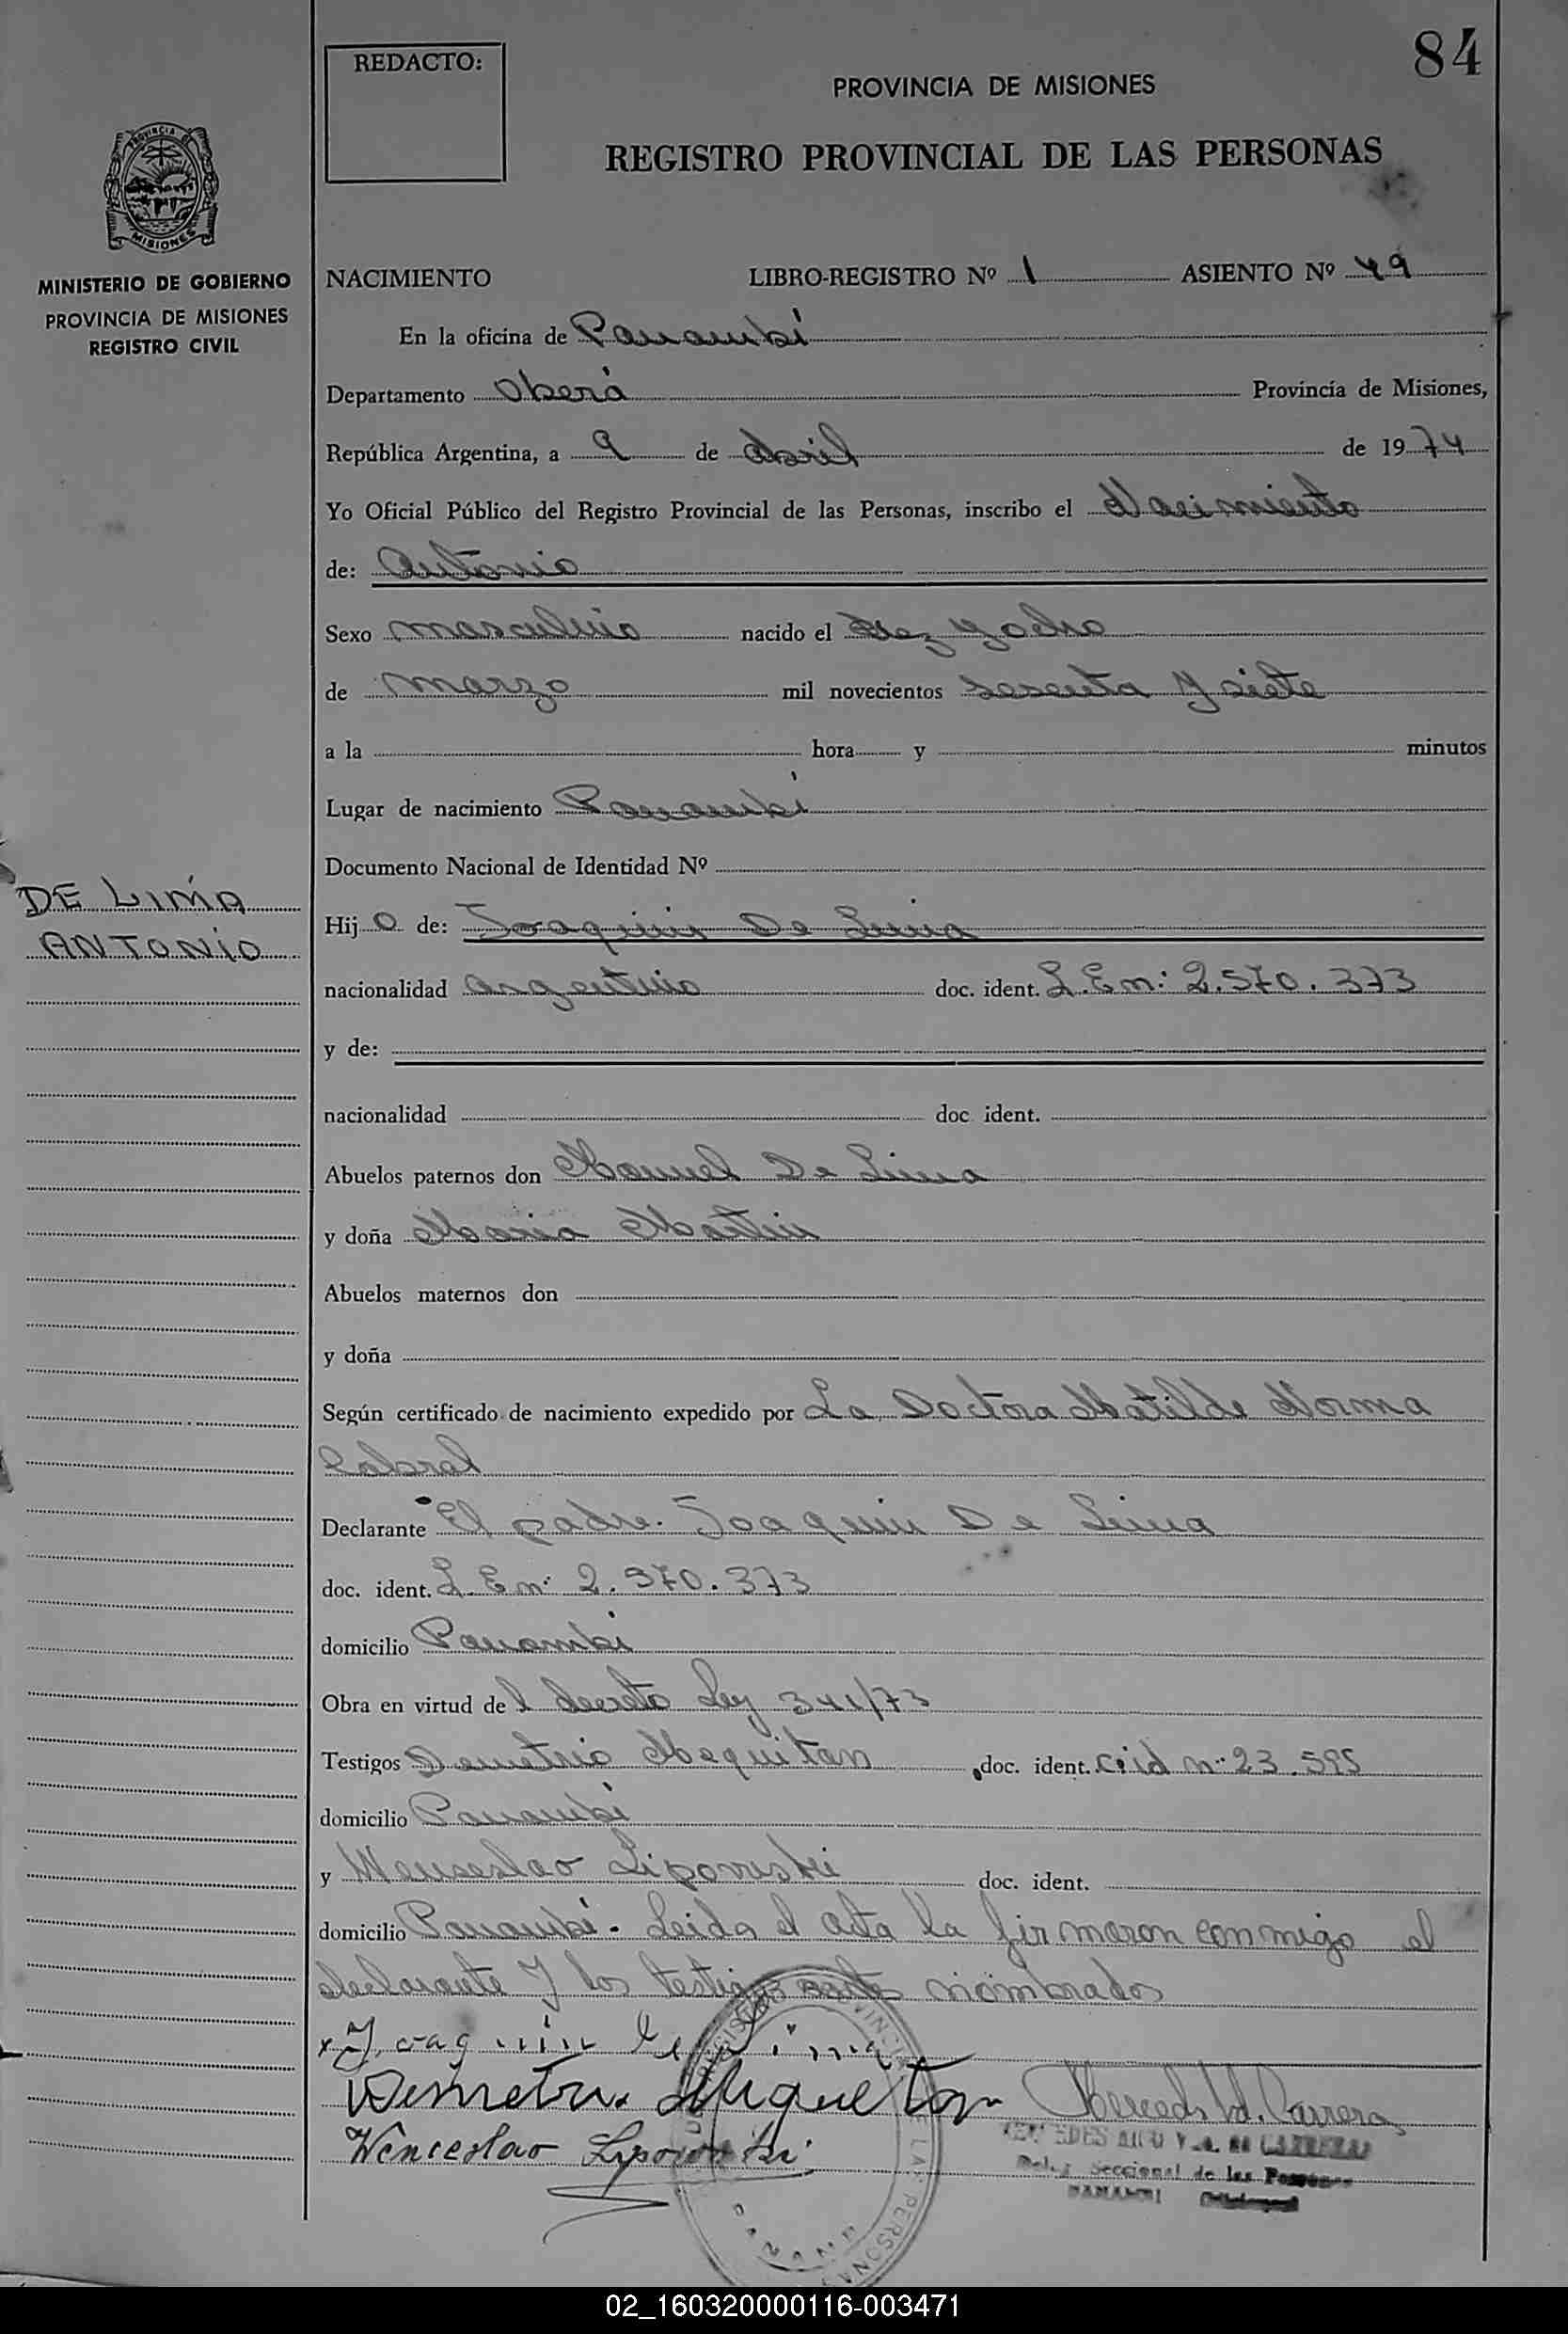 84
REDACTO:
PROVINCIA DE MISIONES
REGISTRO PROVINCIAL DE LAS PERSONAS
PROVINCIA DE
MISIONES
MINISTERIO DE GOBIERNO
PROVINCIA DE MISIONES
REGISTRO CIVIL
NACIMIENTO LIBRO-REGISTRO Nº 1 ASIENTO Nº 49
En la oficina de Panambí
Departamento Oberá Provincia de Misiones,
República Argentina, a 9 de Abril de 1974
Yo Oficial Público del Registro Provincial de las Personas, inscribo el Nacimiento
de: Antonio
Sexo masculino nacido el diez y ocho
de marzo mil novecientos sesenta y siete
a la hora y minutos
Lugar de nacimiento Panambí
Documento Nacional de Identidad Nº
DE LIMA
ANTONIO
Hijo de: Joaquin De Lima
nacionalidad argentino doc. ident. L.E.nº: 2.570.373
y de:
nacionalidad doc. ident.
Abuelos paternos don Manuel De Lima
y doña Maria Martin
Abuelos maternos don
y doña
Según certificado de nacimiento expedido por La Doctora Matilde Norma
Cabral
Declarante El padre. Joaquin De Lima
doc. ident. L.E.nº 2.570.373
domicilio Panambí
Obra en virtud del decreto Ley 341/73
Testigos Demetrio Mequitan doc. ident. C.id nº 23.595
domicilio Panambí
y Wenseslao Lipovuski doc. ident.
domicilio Panambí- Leida el acta la firmaron conmigo el
declarante y los testigos antes nombrados
x Joaquin de Lima
Demetrio Miqueltan Mercedes Vd. Carrera
Wenceslao Lipowski
Seccional de las Personas
PANAMBI